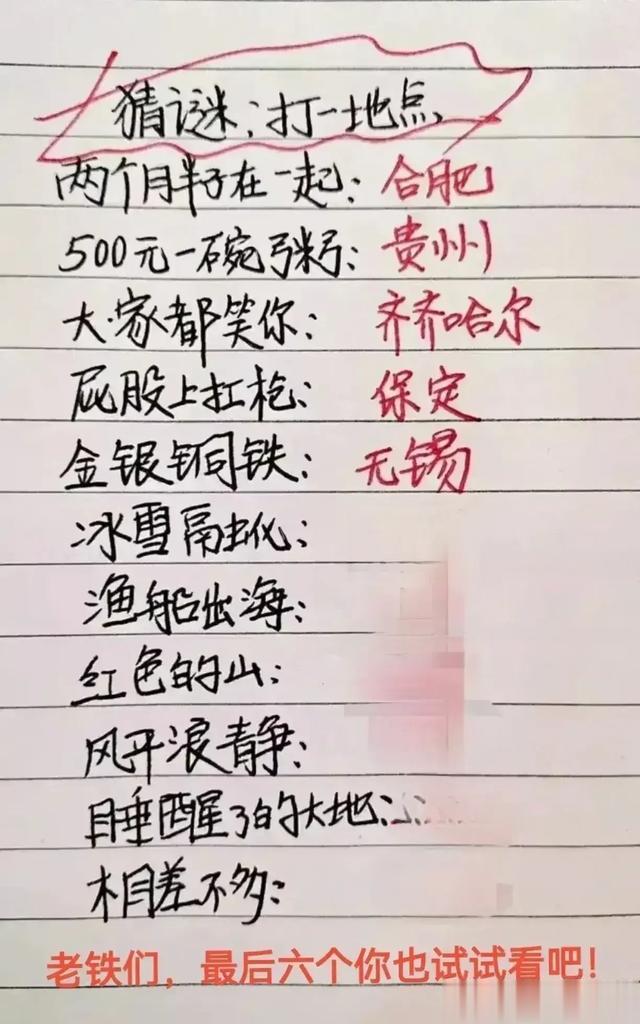 猜谜:打一地点
两个月半子在一起:合肥
500元一碗粥:贵州
大家都笑你:齐齐哈尔
屁股上扛枪:保定
金银铜铁:无锡
冰雪融化:
渔船出海:
红色的山:
风平浪静:
睡醒了的大地:
相差不多:
老铁们，最后六个你也试试看吧！